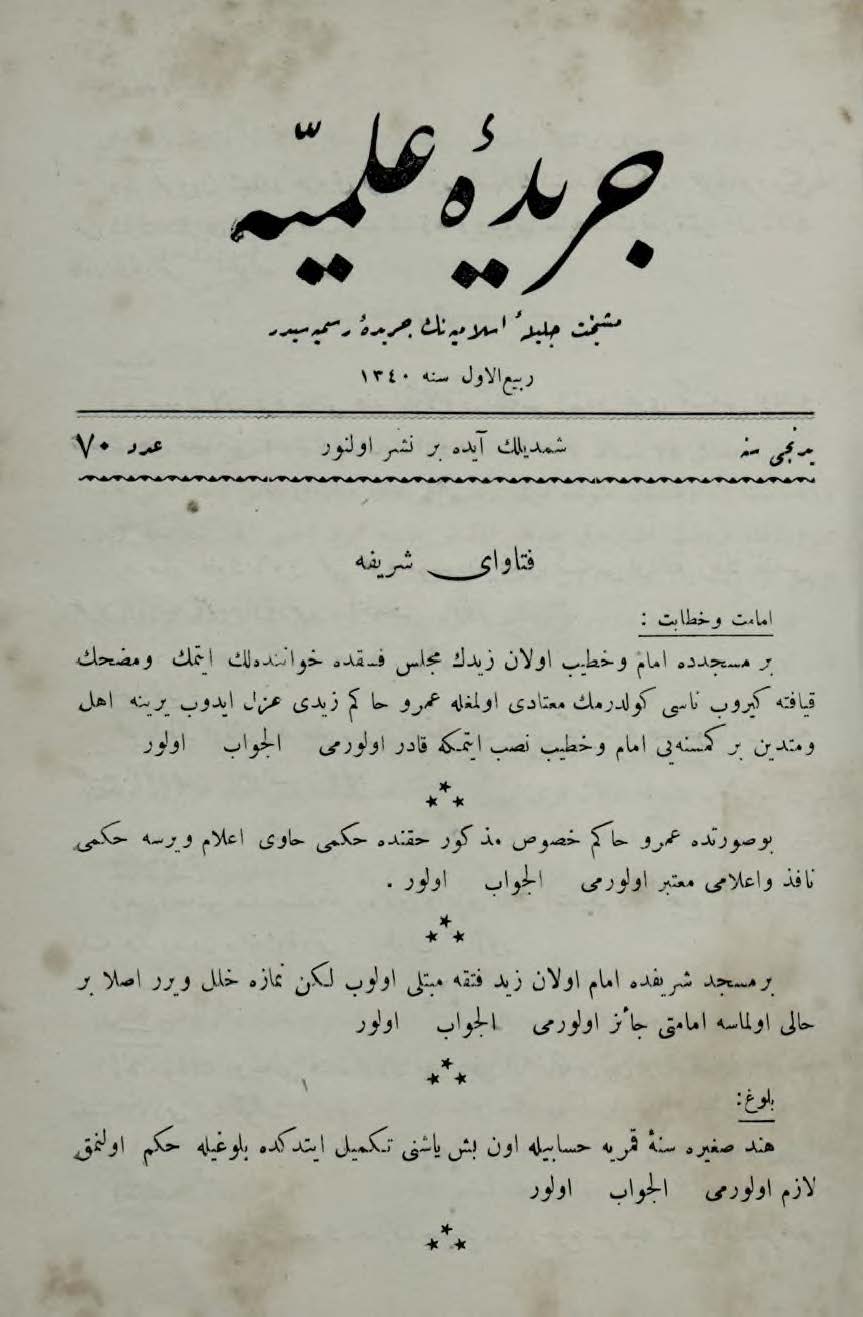 جريدۀ علميّه
مشيخت جليلۀ اسلاميه‌نك جريدۀ رسميه‌سيدر
ربيع‌الاول سنه ١٣٤٠
يدنجى سنه
شمديلك آيده بر نشر اولنور
عدد ٧٠
فتاواى شريفه
امامت وخطابت :
بر مسجدده امام وخطيب اولان زيدك مجلس فسقده خواننده‌لك ايتمك ومضحك
قيافته كيروب ناسى كولدرمك معتادى اولمغله عمرو حاكم زيدى عزل ايدوب يرينه اهل
ومتدين بر كمسنه‌يى امام وخطيب نصب ايتمكه قادر اولورمى الجواب اولور
بوصورتده عمرو حاكم خصوص مذكور حقنده حكمى حاوى اعلام ويرسه حكمى
نافذ واعلامى معتبر اولورمى الجواب اولور .
بر مسجد شريفده امام اولان زيد فتقه مبتلى اولوب لكن نمازه خلل ويرر اصلا بر
حالى اولماسه امامتى جائز اولورمى الجواب اولور
بلوغ:
هند صغيره سنۀ قمريه حسابيله اون بش ياشنى تكميل ايتدكده بلوغيله حكم اولنمق
لازم اولورمى الجواب اولور